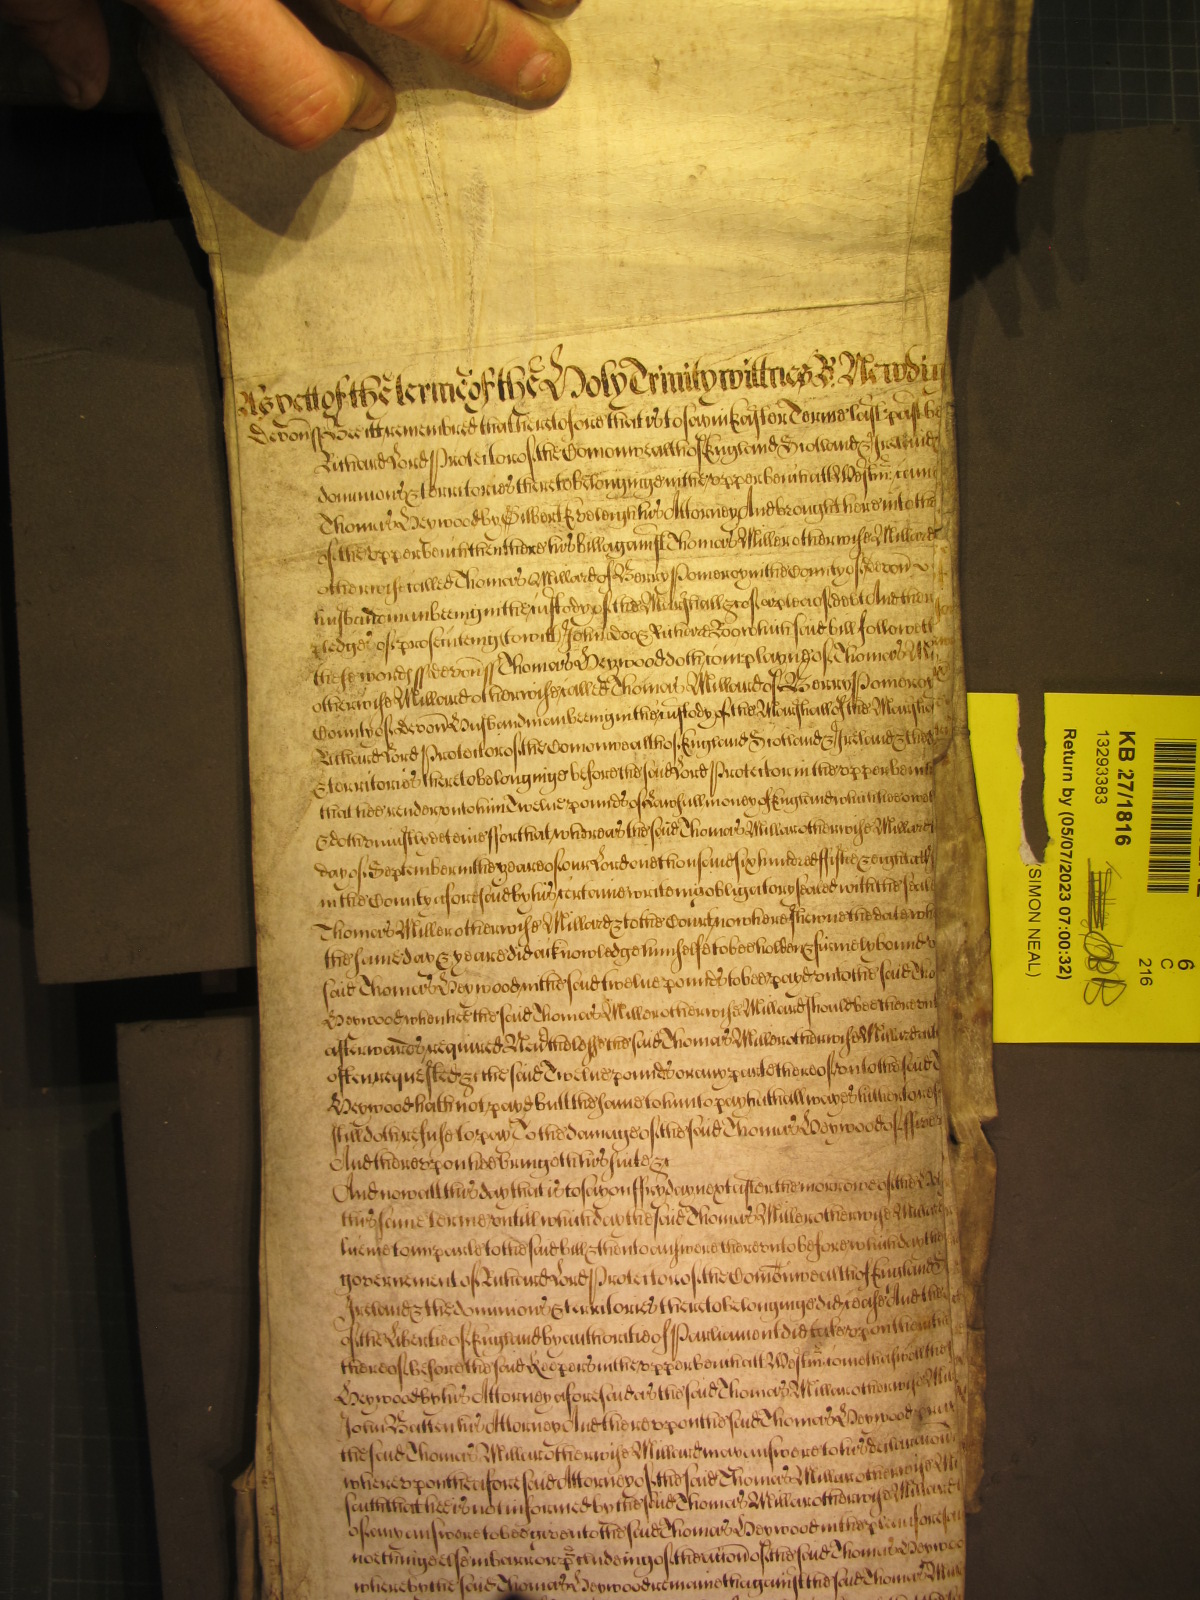 As yett of the terme of the Holy Trinity wittnes R: Newdig
Devon ss Bee itt remembred that heretofore that is to say in Easter Terme last past be
Richard Lord Protector of the Comonwealth of England Scotland & Ireland &
dominions & territories thereto belonginge in the upper bench att Westmr: came
Thomas Heywood by Gilbert Eveleigh his Attorney And brought here into the
of the upper bench then there his bill against Thomas Miller otherwise Millard
otherwise called Thomas Millard of Berry Pomeroy in the County of Devon
husbandman beeing in the custody of the Marshall &c of a plea of debt And there
pledges of prosecuteing to witt John doe & Richard Roo which said bill followeth
these words ss devon ss Thomas Heywood doth complayne of Thomas Mi
otherwise Millard otherwise called Thomas Millard of Berry Pomeroy
County of devon Husbandman beeing in the custody of the Marshall of the Marshal
Richard Lord Protector of the Comonwealth of England Scotland & Ireland & the
& territories thereto belonginge before the said Lord Protector in the upper bench
that hee render unto him Twelve pounds of Lawfull money of England which hee oweth
& doth unjustly deteine ffor that whereas the said Thomas Millar otherwise Millard
day of September in the yeare of our Lord one thousand six hundred fiftie & eight att
in the County aforesaid by his certaine writeing obligatory sealed with the seale
Thomas Miller otherwise Millard & to the Court now here shewne the date wh
the same day & yeare did acknowledge himselfe to bee holden & firmely bound
said Thomas Heywood in the said twelve pounds to bee payd unto the said Tho
Heywood when hee the said Thomas Miller otherwise Millard should bee thereunt
afterwards required Neverthelesse the said Thomas Miller otherwise Millard alth
often requested &c the said Twelve pounds or any parte thereof unto the said T
Heywood hath not payd butt the same to him to pay hath allwayes hitherto
still doth refuse to pay To the damage of the said Thomas Heywood of
And thereupon hee bringeth his suite &c
And now att this day that is to say on ffryday next after the morrowe of the Holy
this same terme untill which day the said Thomas Miller otherwise Millard
lycence to imparle to the said bill & then to answere thereunto before which day the
governement of Richard Lord Protector of the Comonwealth of England
Ireland & the dominions & territories thereto belonginge did cease And the
of the Libertie of England by authoritie of Parliament did take upon them the
thereof before the said Keepers in the upper bench att Westmr: come th aswell the
Heywood by his Attorney aforesaid as the said Thomas Millar otherwise Mil
John Batten his Attorney And thereupon the said Thomas Heywood
the said Thomas Millar otherwise Millard may answere to his declaracon
whereupon the aforesaid Attorney of the said Thomas Millar otherwise Mi
saith that hee is not informed by the said Thomas Millar otherwise Millard
of any answere to bee given to the said Thomas Heywood in the plea aforesaid
nothinge else in barr or precludeing of the accon of the said Thomas Heywoo
whereby the said Thomas Heywood remaineth against the said Thomas
KB 27/1816
13293383
Return by (05/07/2023 07:00:32)
(SIMON NEAL)
6
C
216